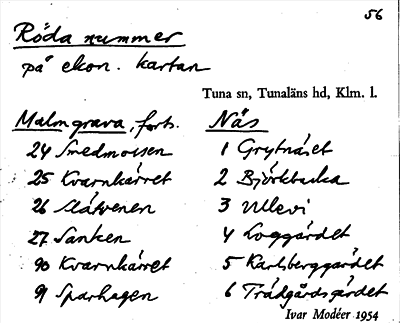 56
Röda nummer
på ekon. kartan
Tuna sn, Tunaläns hd, Klm. l.
Malmgrava, forts.
24 Smedmossen
25 Kvarnkärret
26
27 Sanken
90 Kvarnkärret
91 Sparhagen
Näs
1 Grytnäset
2 Björkbacka
3 Ullevi
4 Loggärdet
5 Karlsberggärdet
6 Trädgårdsgärdet
Ivar Modéer 1954